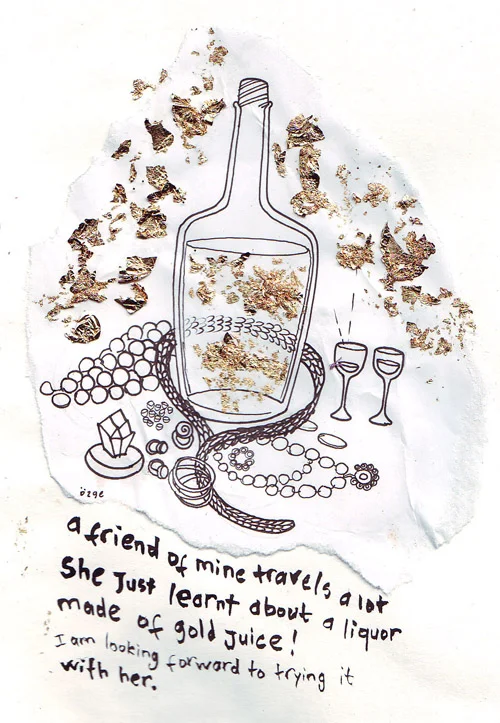 özge
a friend of mine travels a lot
She just learnt about a liquor
made of gold juice!
I am looking forward to trying it
with her.